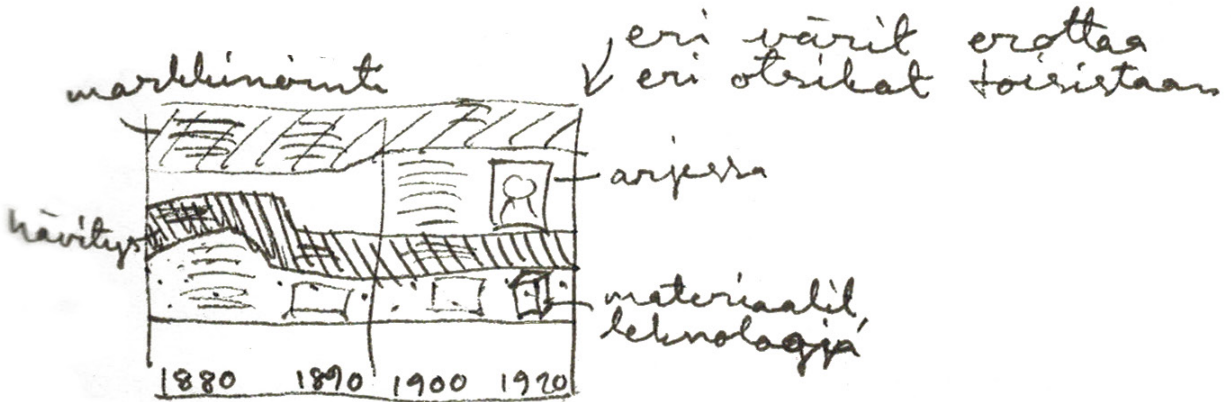 eri värit erottaa
eri otsikat toisistaan
markkinointi
arjessa
hävitys
materiaalit,
teknologia
1880 1890 1900 1920